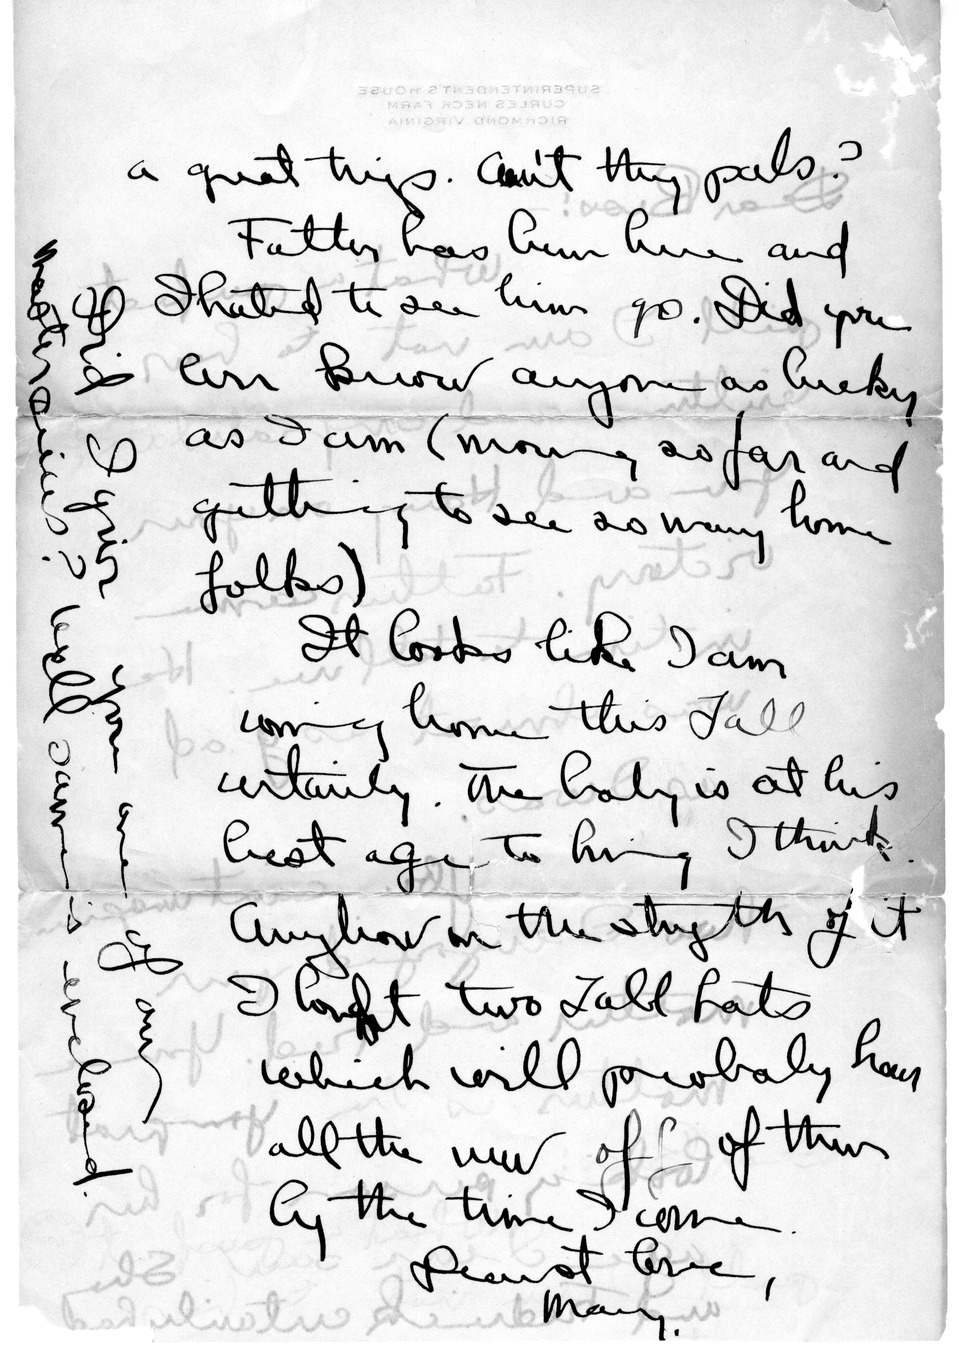 a great trips. Ain't they pals?
Father has him here and
I hated to see him go. Did you
ever know anyone as lucky
as I am (moving so far and
getting to see so many home
folks)
It looks like I am
coming home this Fall
certainly. The baby is at his
best age to bring I think.
Anyhow on the strength of it
I bought two Fall hats
which will probaly have
all the new off of them
by the time I come.
Dearest love,
Mary.
Did I give you one of our
masterpieces? Well Sam is enclosed.
SUPERINTENDENT'S HOUSE
CURLES NECK FARM
RICHMOND, VIRGINIA